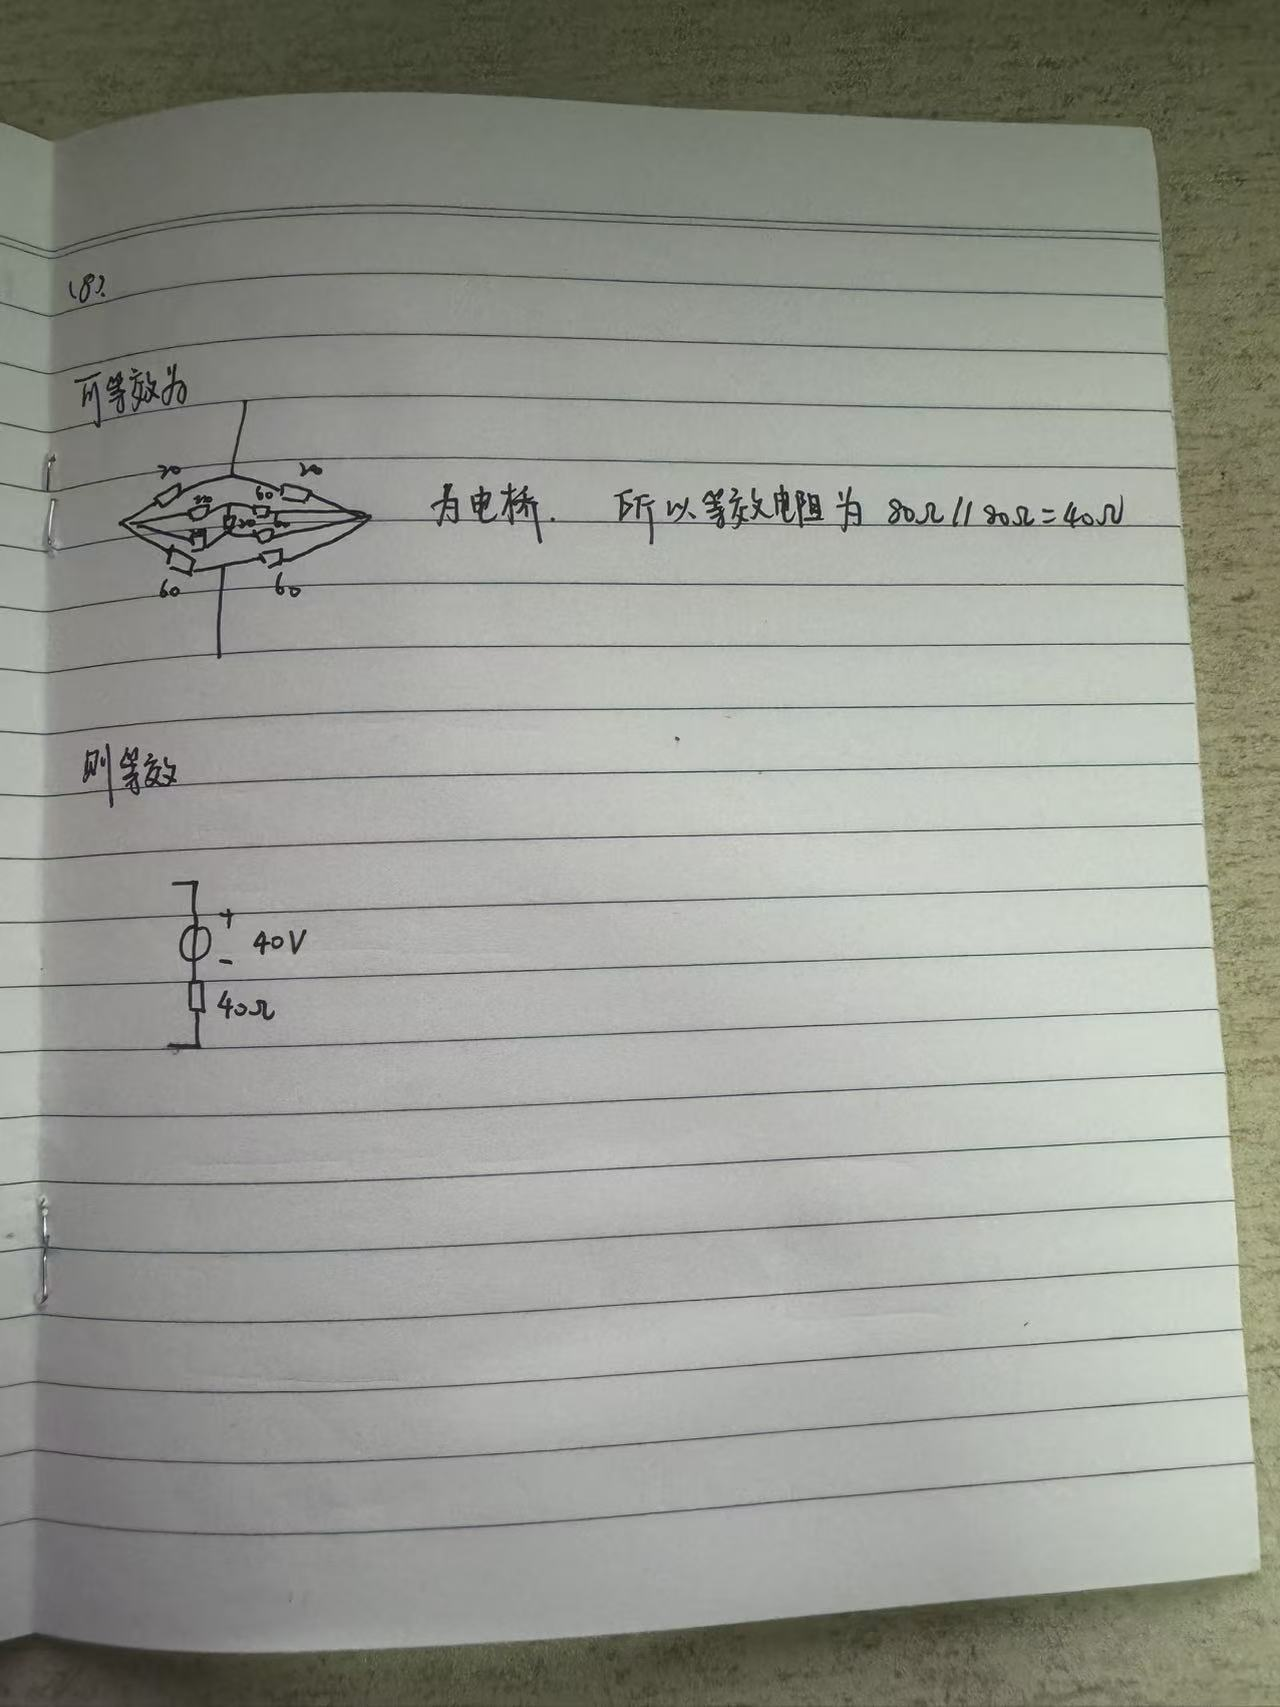 (8).
可等效为
20 20
20 60
20 60
60 60
为电桥. 所以等效电阻为 80Ω//80Ω=40Ω
则等效
+
40V
-
40Ω